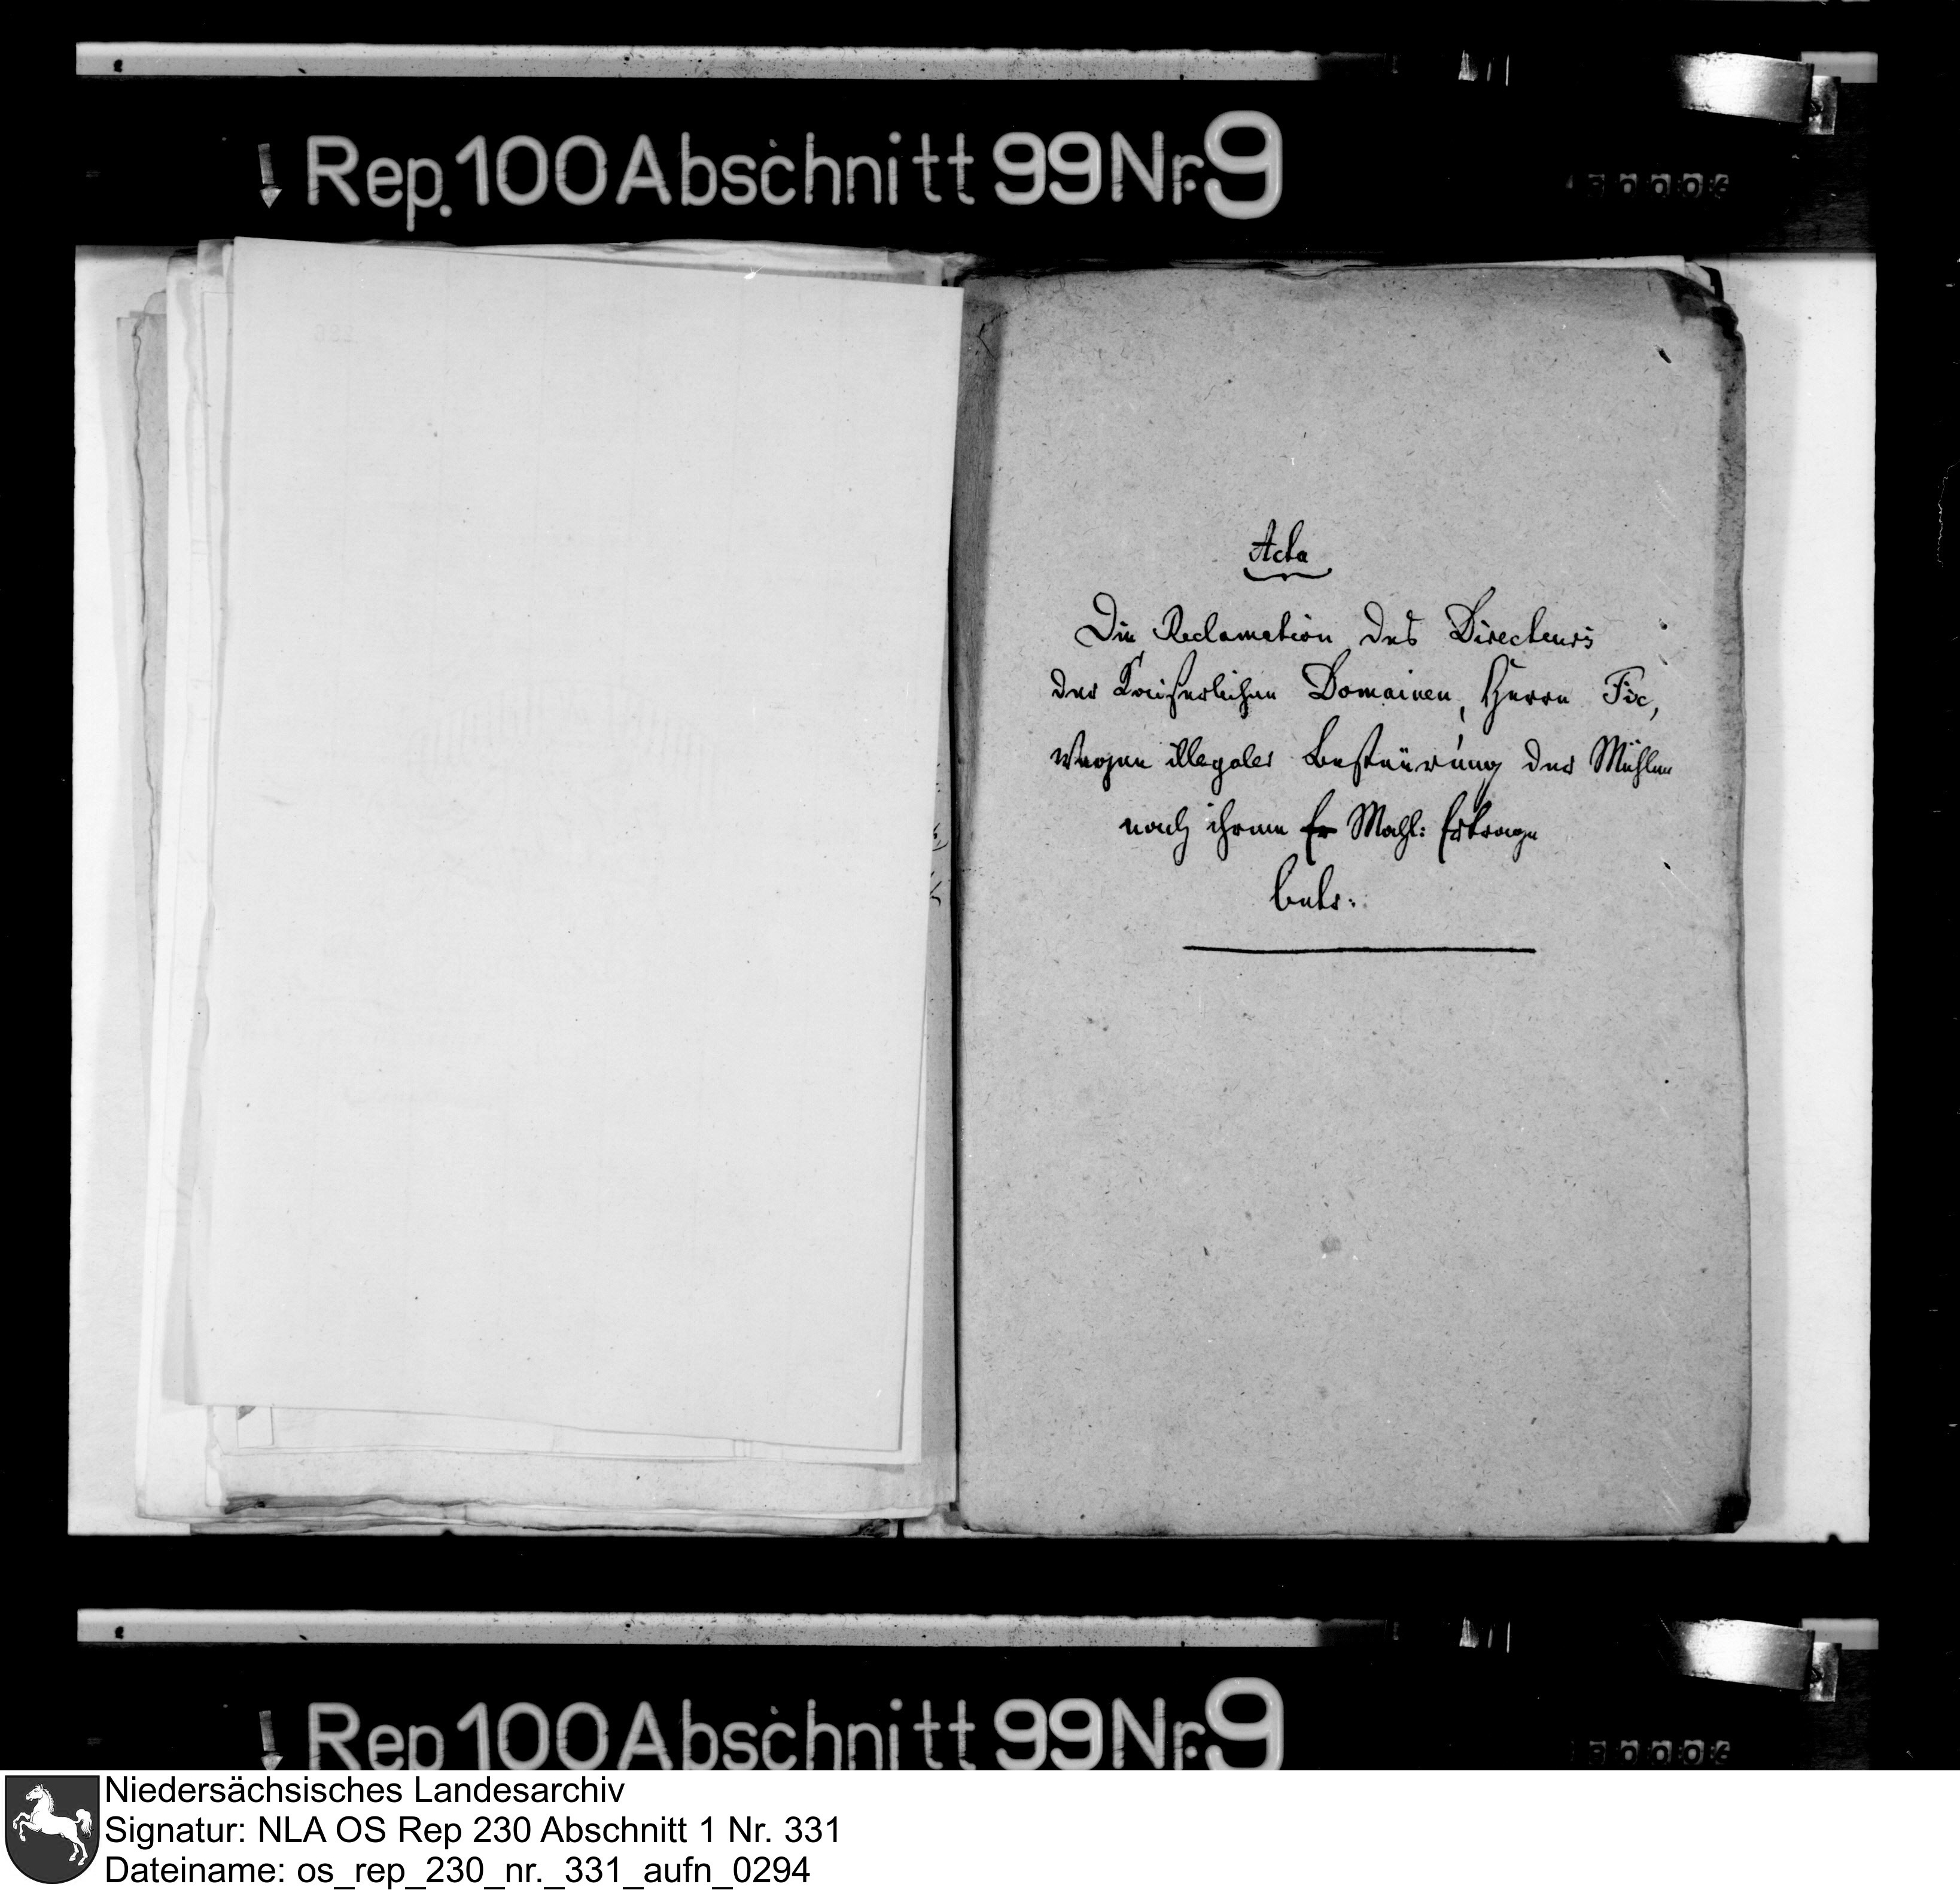 Rep. 100 Abschnitt 99 Nr. 9
Acta
Die Reclamation des Directeurs
der Kaiserlichen Domainen, Herrn Fix,
wegen illegaler Besteürung der Mühlen
nach ihrem Er Mahl: Ertrage
betr:
Rep 100 Abschnitt 99 Nr. 9
Niedersächsisches Landesarchiv
Signatur: NLA OS Rep 230 Abschnitt 1 Nr. 331
Dateiname: os_rep_230_nr._331_aufn_0294